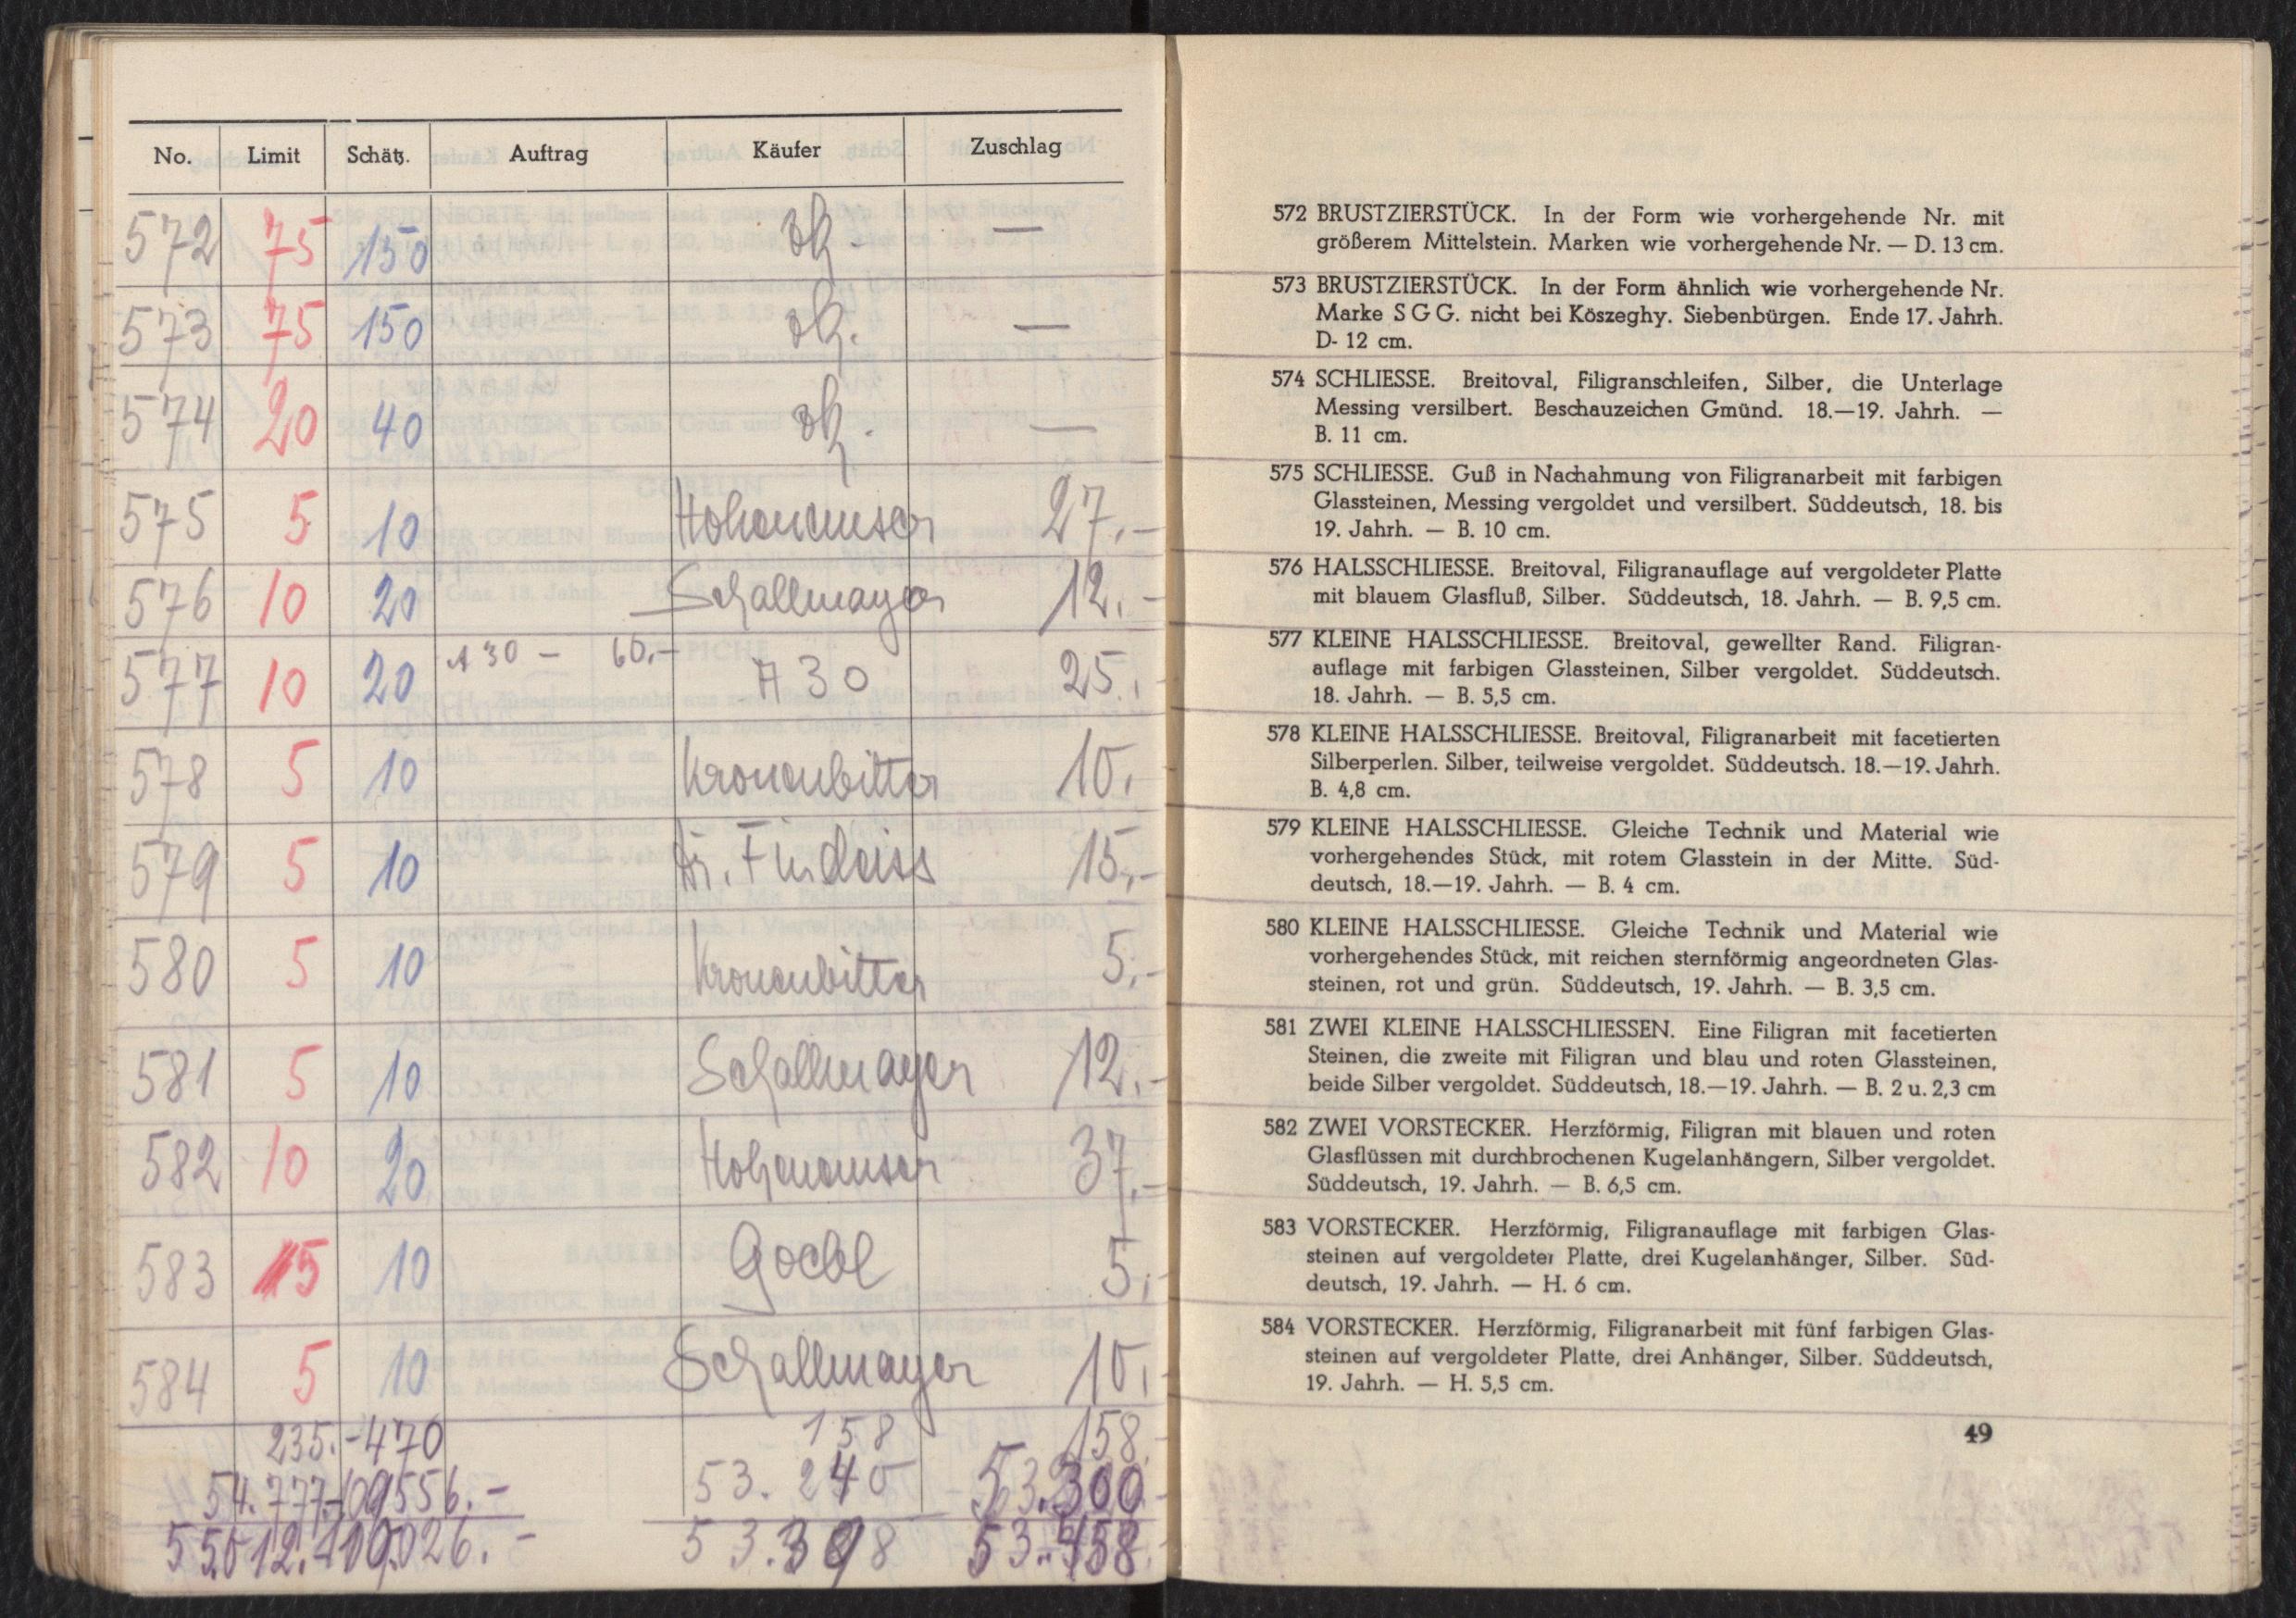 No. Limit Schätz. Auftrag Käufer Zuschlag
572 75 150 —
573 75 150 —
574 20 40 —
575 5 10 Hohenemser 27.-
576 10 20 Schallmayer 12.-
577 10 20 A 30 — 60.- A 30 25.
578 5 10 Kronenbitter 10.
579 5 10 Dr. Findeiss 15.-
580 5 10 Kronenbitter 5.-
581 5 10 Schallmayer 12.-
582 10 20 Hohenemser 37.-
583 5 10 Goebl 5.
584 5 10 Schallmayer 10.
235.- 470 158 158.
54.777.- 109556.- 53.240 53.300.-
55.012.- 110.026.- 53.398 53.458.
572 BRUSTZIERSTÜCK. In der Form wie vorhergehende Nr. mit
größerem Mittelstein. Marken wie vorhergehende Nr. — D. 13 cm.
573 BRUSTZIERSTÜCK. In der Form ähnlich wie vorhergehende Nr.
Marke S G G. nicht bei Köszeghy. Siebenbürgen. Ende 17. Jahrh.
D- 12 cm.
574 SCHLIESSE. Breitoval, Filigranschleifen, Silber, die Unterlage
Messing versilbert. Beschauzeichen Gmünd. 18.—19. Jahrh. —
B. 11 cm.
575 SCHLIESSE. Guß in Nachahmung von Filigranarbeit mit farbigen
Glassteinen, Messing vergoldet und versilbert. Süddeutsch, 18. bis
19. Jahrh. — B. 10 cm.
576 HALSSCHLIESSE. Breitoval, Filigranauflage auf vergoldeter Platte
mit blauem Glasfluß, Silber. Süddeutsch, 18. Jahrh. — B. 9,5 cm.
577 KLEINE HALSSCHLIESSE. Breitoval, gewellter Rand. Filigran-
auflage mit farbigen Glassteinen, Silber vergoldet. Süddeutsch.
18. Jahrh. — B. 5,5 cm.
578 KLEINE HALSSCHLIESSE. Breitoval, Filigranarbeit mit facetierten
Silberperlen. Silber, teilweise vergoldet. Süddeutsch. 18.—19. Jahrh.
B. 4,8 cm.
579 KLEINE HALSSCHLIESSE. Gleiche Technik und Material wie
vorhergehendes Stück, mit rotem Glasstein in der Mitte. Süd-
deutsch, 18.—19. Jahrh. — B. 4 cm.
580 KLEINE HALSSCHLIESSE. Gleiche Technik und Material wie
vorhergehendes Stück, mit reichen sternförmig angeordneten Glas-
steinen, rot und grün. Süddeutsch, 19. Jahrh. — B. 3,5 cm.
581 ZWEI KLEINE HALSSCHLIESSEN. Eine Filigran mit facetierten
Steinen, die zweite mit Filigran und blau und roten Glassteinen,
beide Silber vergoldet. Süddeutsch, 18.—19. Jahrh. — B. 2 u. 2,3 cm
582 ZWEI VORSTECKER. Herzförmig, Filigran mit blauen und roten
Glasflüssen mit durchbrochenen Kugelanhängern, Silber vergoldet.
Süddeutsch, 19. Jahrh. — B. 6,5 cm.
583 VORSTECKER. Herzförmig, Filigranauflage mit farbigen Glas-
steinen auf vergoldeter Platte, drei Kugelanhänger, Silber. Süd-
deutsch, 19. Jahrh. — H. 6 cm.
584 VORSTECKER. Herzförmig, Filigranarbeit mit fünf farbigen Glas-
steinen auf vergoldeter Platte, drei Anhänger, Silber. Süddeutsch,
19. Jahrh. — H. 5,5 cm.
49